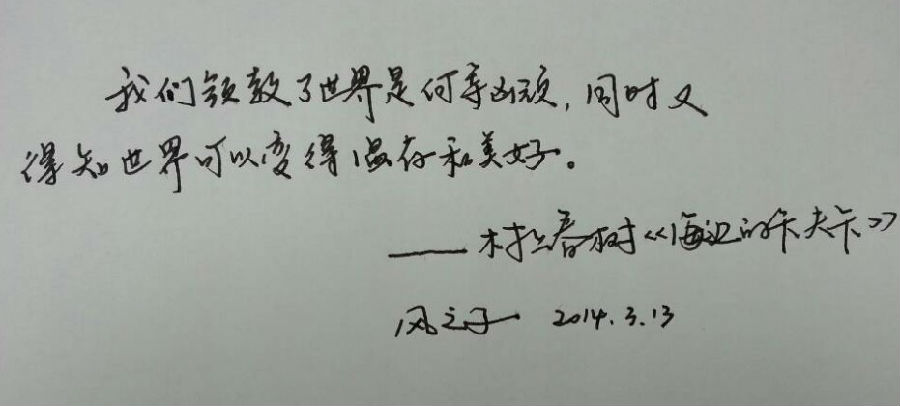 我们领教了世界是何等凶顽，同时又
得知世界可以变得温存和美好。
——村上春树《海边的卡夫卡》
风之子 2014.3.13